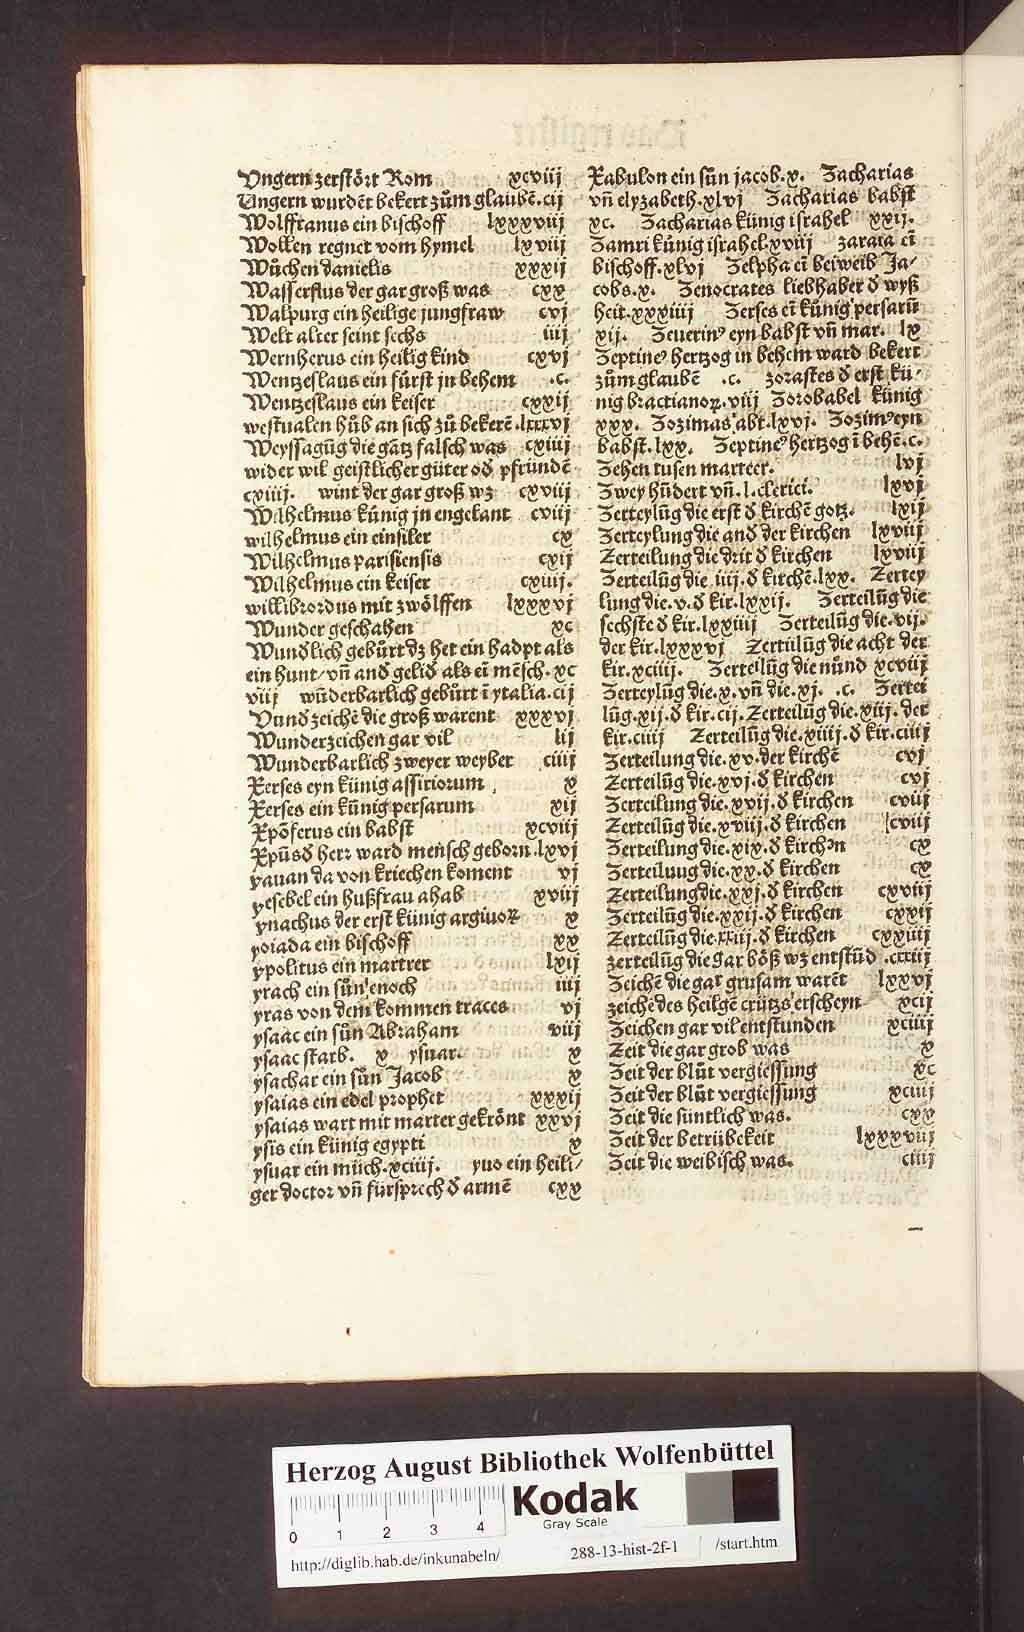 Vngern zerstört Rom xcviij
Ungern wurdēt bekert zům glaubē.cij
Wolfftanus ein bischoff lxxxviij
Wolken regnet vom hymel lxviij
Wůchen danielis xxxij
Wasserflus der gar groß was cxx
Walpurg ein heilige jungfraw cvj
Welt alter seint sechs iiij
Wernherus ein heilig kind cxvj
Wentzeslaus ein fürst jn behem .c.
Wentzeslaus ein keiser cxxij
westualen hůb an sich zů bekerē.lxxxvj
Weyssagūg die gātz falsch was cxiiij
wider wil geistlicher güter od pfründē
cxiiij. wint der gar groß wz cxviij
Wilhelmus künig jn engelant cviij
wilhelmus ein einsiler cx
Wilhelmus parisiensis cxij
Wilhelmus ein keiser cxiiij.
willibrordus mit zwölffen lxxxvj
Wunder geschahen xc
Wundlich gebůrt dz het ein hadpt als
ein hunt/vñ and gelid als eī mēsch.xc
viij wūderbarlich gebůrt ī ytalia.cij
Vund zeichē die groß warent xxxvj
Wunderzeichen gar vil lij
Wunderbarlich zweyer weyber ciiij
Xerses eyn künig assiriorum x
Xerses ein künig persarum xij
Xpōferus ein babst xcviij
Xpūs đ herr ward mensch geborn.lxvj
yauan da von kriechen koment vj
yesebel ein hußfrau ahab xviij
ynachus der erst künig argiuoꝝ x
yoiada ein bischoff xx
ypolitus ein martrer lxij
yrach ein sůn enoch iiij
yras von dem kommen traces vj
ysaac ein sůn Abraham viij
ysaac starb. x ysuar. x
ysachar ein sůn Jacob x
ysaias ein edel prophet xxxij
ysaias wart mit marter gekrönt xxvj
ysis ein künig egypti x
ysuar ein müch.xciiij. yuo ein heili/
ger doctor vñ fürsprech đ armē cxx
Xabulon ein sůn jacob.x. Zacharias
vñ elyzabeth.xlvj Zacharias babst
xc. Zacharias künig israhel xxij.
Zamri künig israhel.xviij zaraia eī
bischoff.xlvj Zelpha eī beiweib Ja/
cobs.x. Zenocrates liebhaber đ wyß
heit.xxxiiij Zerses eī künig persarū
xij. Zeuerin⁹ eyn babst vñ mar. lx
Zeptine⁹ hertzog in behem ward bekert
zům glaubē .c. zorastes đ erst kü/
nig bractianoꝝ.viij Zorobabel künig
xxx. Zozimas abt.lxvj. Zozim⁹ eyn
babst.lxx. Zeptine⁹ hertzog ī behē.c.
Zehen tusen marteer. lvj
Zwey hūdert vñ.l.clerici. lxvj
Zerteylūg die erst đ kirchē gotz. lxij
Zerteylung die and der kirchen lxviij
Zerteilung die drit đ kirchen lxviij
Zerteilūg die.iiij.đ kirchē.lxx. Zertey
lung die.v.đ kir.lxxij. Zerteilūg die
sechste đ kir.lxxiiij Zerteilūg die.vij.
der kir.lxxxvj Zertülūg die acht der
kir.xciiij. Zerteilūg die nůnd xcviij
Zerteylūg die.x.vñ die.xj. .c. Zertei
lūg.xij.đ kir.cij.Zerteilūg die.xiij.der
kir.ciiij Zerteilūg die.xiiij.đ kir.ciiij
Zerteilung die.xv.der kirchē cvj
Zerteilūg die.xvj.đ kirchen cvj
Zerteilung die.xvij.đ kirchen cviij
Zerteilūg die.xviij.đ kirchen cviij
Zerteilung die.xix.đ kirchen cx
Zerteiluug die.xx.đ kirchen cx
Zerteilung die.xxj.đ kirchen cxviij
Zerteilūg die.xxij.đ kirchen cxxij
Zerteilūg die.xxiij.đ kirchen cxxiiij
zerteilūg die gar böß wz entstūd .cxxiij
Zeichē die gar grusam warēt lxxvj
zeichē des heilgē crütz⁹ erscheyn xcij
Zeichen gar vil entstunden xciiij
Zeit die gar grob was x
Zeit der blůt vergiessung xc
Zeit der blůt vergiessung xciiij
Zeit die süntlich was. cxx
Zeit der betrübekeit lxxxviij
Zeit die weibisch was. ciiij
Herzog August Bibliothek Wolfenbüttel
Kodak
Gray Scale
0 1 2 3 4
http://diglib.hab.de/inkunabeln/ 288-13-hist-2f-1 /start.htm